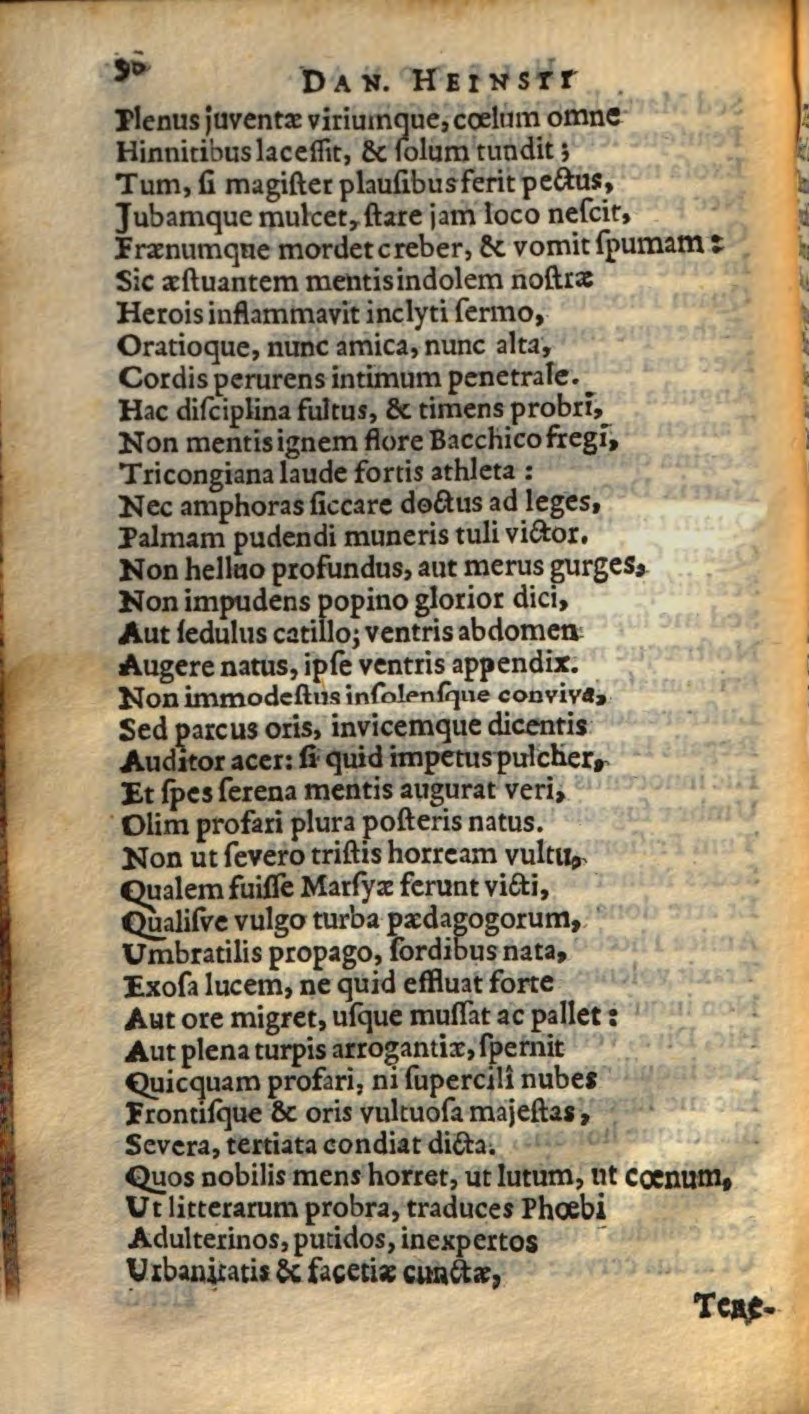 90
DAN. HEINSII
Plenus juventæ viriumque, cœlum omne
Hinnitibus lacessit, & solum tundit;
Tum, si magister plausibus ferit pectus,
Jubamque mulcet, stare jam loco nescit,
Frænumque mordet creber, & vomit spumam:
Sic æstuantem mentis indolem nostræ
Herois inflammavit inclyti sermo,
Oratioque, nunc amica, nunc alta,
Cordis perurens intimum penetrale.
Hac disciplina fultus, & timens probri,
Non mentis ignem flore Bacchico fregi,
Tricongiana laude fortis athleta:
Nec amphoras siccare doctus ad leges,
Palmam pudendi muneris tuli victor.
Non helluo profundus, aut merus gurges,
Non impudens popino glorior dici,
Aut sedulus catillo; ventris abdomen
Augere natus, ipse ventris appendix.
Non immodestus insolensque conviva,
Sed parcus oris, invicemque dicentis
Auditor acer: si quid impetus pulcher,
Et spes serena mentis augurat veri,
Olim profari plura posteris natus.
Non ut severo tristis horream vultu,
Qualem fuisse Marsyæ ferunt victi,
Qualisve vulgo turba pædagogorum,
Umbratilis propago, sordibus nata,
Exosa lucem, ne quid effluat forte
Aut ore migret, usque mussat ac pallet:
Aut plena turpis arrogantiæ, spernit
Quicquam profari, ni supercilî nubes
Frontisque & oris vultuosa majestas,
Severa, tertiata condiat dicta.
Quos nobilis mens horret, ut lutum, ut cœnum,
Ut litterarum probra, traduces Phœbi
Adulterinos, putidos, inexpertos
Urbanitatis & facetiæ cunctæ,
Tene-